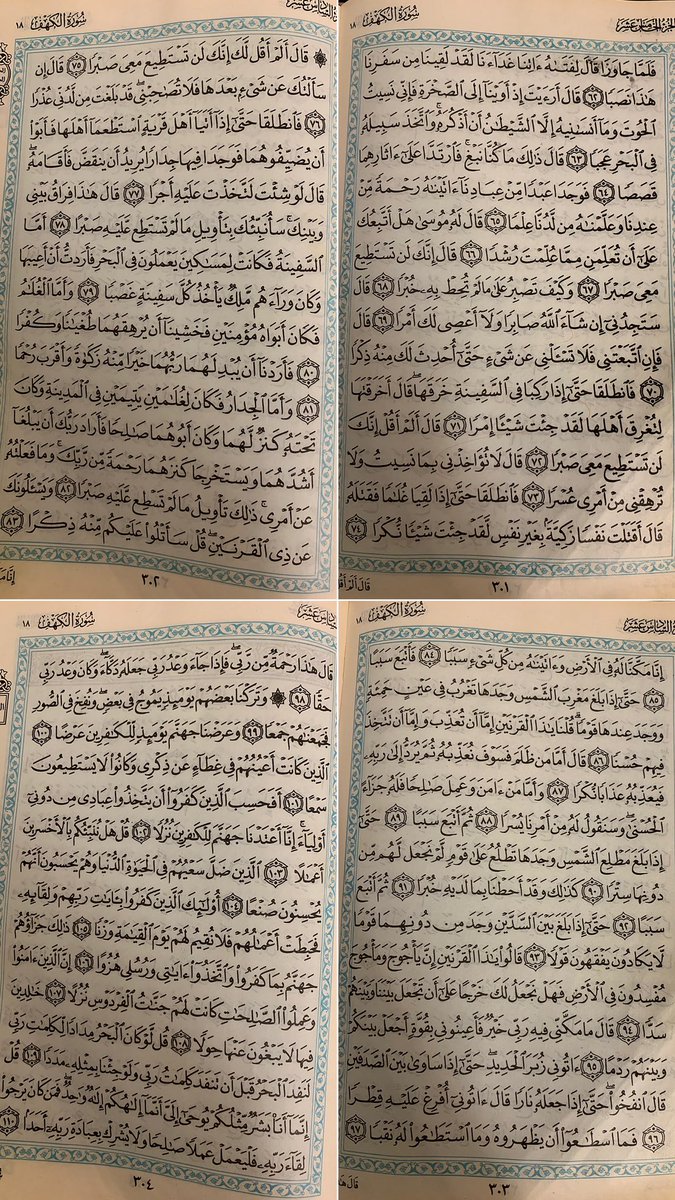 الجزء الخامس عشر سورة الكهف ١٨
فَلَمَّا جَاوَزَا قَالَ لِفَتَىٰهُ ءَاتِنَا غَدَآءَنَا لَقَدْ لَقِينَا مِن سَفَرِنَا
هَٰذَا نَصَبًا ٦٢ قَالَ أَرَءَيْتَ إِذْ أَوَيْنَآ إِلَى ٱلصَّخْرَةِ فَإِنِّى نَسِيتُ
ٱلْحُوتَ وَمَآ أَنسَىٰنِيهُ إِلَّا ٱلشَّيْطَٰنُ أَنْ أَذْكُرَهُۥ وَٱتَّخَذَ سَبِيلَهُۥ
فِى ٱلْبَحْرِ عَجَبًا ٦٣ قَالَ ذَٰلِكَ مَا كُنَّا نَبْغِ فَٱرْتَدَّا عَلَىٰٓ ءَاثَارِهِمَا
قَصَصًا ٦٤ فَوَجَدَا عَبْدًا مِّنْ عِبَادِنَآ ءَاتَيْنَٰهُ رَحْمَةً مِّنْ
عِندِنَا وَعَلَّمْنَٰهُ مِن لَّدُنَّا عِلْمًا ٦٥ قَالَ لَهُۥ مُوسَىٰ هَلْ أَتَّبِعُكَ
عَلَىٰٓ أَن تُعَلِّمَنِ مِمَّا عُلِّمْتَ رُشْدًا ٦٦ قَالَ إِنَّكَ لَن تَسْتَطِيعَ
مَعِىَ صَبْرًا ٦٧ وَكَيْفَ تَصْبِرُ عَلَىٰ مَا لَمْ تُحِطْ بِهِۦ خُبْرًا ٦٨ قَالَ
سَتَجِدُنِىٓ إِن شَآءَ ٱللَّهُ صَابِرًا وَلَآ أَعْصِى لَكَ أَمْرًا ٦٩ قَالَ
فَإِنِ ٱتَّبَعْتَنِى فَلَا تَسْـَٔلْنِى عَن شَىْءٍ حَتَّىٰٓ أُحْدِثَ لَكَ مِنْهُ ذِكْرًا
٧٠ فَٱنطَلَقَا حَتَّىٰٓ إِذَا رَكِبَا فِى ٱلسَّفِينَةِ خَرَقَهَا قَالَ أَخَرَقْتَهَا
لِتُغْرِقَ أَهْلَهَا لَقَدْ جِئْتَ شَيْـًٔا إِمْرًا ٧١ قَالَ أَلَمْ أَقُلْ إِنَّكَ
لَن تَسْتَطِيعَ مَعِىَ صَبْرًا ٧٢ قَالَ لَا تُؤَاخِذْنِى بِمَا نَسِيتُ وَلَا
تُرْهِقْنِى مِنْ أَمْرِى عُسْرًا ٧٣ فَٱنطَلَقَا حَتَّىٰٓ إِذَا لَقِيَا غُلَٰمًا فَقَتَلَهُۥ
قَالَ أَقَتَلْتَ نَفْسًا زَكِيَّةًۢ بِغَيْرِ نَفْسٍ لَّقَدْ جِئْتَ شَيْـًٔا نُّكْرًا ٧٤
٣٠١
سورة الكهف ١٨
۞ قَالَ أَلَمْ أَقُل لَّكَ إِنَّكَ لَن تَسْتَطِيعَ مَعِىَ صَبْرًا ٧٥ قَالَ إِن
سَأَلْتُكَ عَن شَىْءٍۭ بَعْدَهَا فَلَا تُصَٰحِبْنِى قَدْ بَلَغْتَ مِن لَّدُنِّى عُذْرًا
٧٦ فَٱنطَلَقَا حَتَّىٰٓ إِذَآ أَتَيَآ أَهْلَ قَرْيَةٍ ٱسْتَطْعَمَآ أَهْلَهَا فَأَبَوْا۟
أَن يُضَيِّفُوهُمَا فَوَجَدَا فِيهَا جِدَارًا يُرِيدُ أَن يَنقَضَّ فَأَقَامَهُۥ
قَالَ لَوْ شِئْتَ لَتَّخَذْتَ عَلَيْهِ أَجْرًا ٧٧ قَالَ هَٰذَا فِرَاقُ بَيْنِى
وَبَيْنِكَ سَأُنَبِّئُكَ بِتَأْوِيلِ مَا لَمْ تَسْتَطِع عَّلَيْهِ صَبْرًا ٧٨ أَمَّا
ٱلسَّفِينَةُ فَكَانَتْ لِمَسَٰكِينَ يَعْمَلُونَ فِى ٱلْبَحْرِ فَأَرَدتُّ أَنْ أَعِيبَهَا
وَكَانَ وَرَآءَهُم مَّلِكٌ يَأْخُذُ كُلَّ سَفِينَةٍ غَصْبًا ٧٩ وَأَمَّا ٱلْغُلَٰمُ
فَكَانَ أَبَوَاهُ مُؤْمِنَيْنِ فَخَشِينَآ أَن يُرْهِقَهُمَا طُغْيَٰنًا وَكُفْرًا
٨٠ فَأَرَدْنَآ أَن يُبْدِلَهُمَا رَبُّهُمَا خَيْرًا مِّنْهُ زَكَوٰةً وَأَقْرَبَ رُحْمًا
٨١ وَأَمَّا ٱلْجِدَارُ فَكَانَ لِغُلَٰمَيْنِ يَتِيمَيْنِ فِى ٱلْمَدِينَةِ وَكَانَ
تَحْتَهُۥ كَنزٌ لَّهُمَا وَكَانَ أَبُوهُمَا صَٰلِحًا فَأَرَادَ رَبُّكَ أَن يَبْلُغَآ
أَشُدَّهُمَا وَيَسْتَخْرِجَا كَنزَهُمَا رَحْمَةً مِّن رَّبِّكَ وَمَا فَعَلْتُهُۥ
عَنْ أَمْرِى ذَٰلِكَ تَأْوِيلُ مَا لَمْ تَسْطِع عَّلَيْهِ صَبْرًا ٨٢ وَيَسْـَٔلُونَكَ
عَن ذِى ٱلْقَرْنَيْنِ قُلْ سَأَتْلُوا۟ عَلَيْكُم مِّنْهُ ذِكْرًا ٨٣
٣٠٢
الجزء السادس عشر سورة الكهف ١٨
إِنَّا مَكَّنَّا لَهُۥ فِى ٱلْأَرْضِ وَءَاتَيْنَٰهُ مِن كُلِّ شَىْءٍ سَبَبًا ٨٤ فَأَتْبَعَ سَبَبًا
٨٥ حَتَّىٰٓ إِذَا بَلَغَ مَغْرِبَ ٱلشَّمْسِ وَجَدَهَا تَغْرُبُ فِى عَيْنٍ حَمِئَةٍ
وَوَجَدَ عِندَهَا قَوْمًا قُلْنَا يَٰذَا ٱلْقَرْنَيْنِ إِمَّآ أَن تُعَذِّبَ وَإِمَّآ أَن تَتَّخِذَ
فِيهِمْ حُسْنًا ٨٦ قَالَ أَمَّا مَن ظَلَمَ فَسَوْفَ نُعَذِّبُهُۥ ثُمَّ يُرَدُّ إِلَىٰ رَبِّهِۦ
فَيُعَذِّبُهُۥ عَذَابًا نُّكْرًا ٨٧ وَأَمَّا مَنْ ءَامَنَ وَعَمِلَ صَٰلِحًا فَلَهُۥ جَزَآءً
ٱلْحُسْنَىٰ وَسَنَقُولُ لَهُۥ مِنْ أَمْرِنَا يُسْرًا ٨٨ ثُمَّ أَتْبَعَ سَبَبًا ٨٩ حَتَّىٰٓ
إِذَا بَلَغَ مَطْلِعَ ٱلشَّمْسِ وَجَدَهَا تَطْلُعُ عَلَىٰ قَوْمٍ لَّمْ نَجْعَل لَّهُم مِّن
دُونِهَا سِتْرًا ٩٠ كَذَٰلِكَ وَقَدْ أَحَطْنَا بِمَا لَدَيْهِ خُبْرًا ٩١ ثُمَّ أَتْبَعَ
سَبَبًا ٩٢ حَتَّىٰٓ إِذَا بَلَغَ بَيْنَ ٱلسَّدَّيْنِ وَجَدَ مِن دُونِهِمَا قَوْمًا
لَّا يَكَادُونَ يَفْقَهُونَ قَوْلًا ٩٣ قَالُوا۟ يَٰذَا ٱلْقَرْنَيْنِ إِنَّ يَأْجُوجَ وَمَأْجُوجَ
مُفْسِدُونَ فِى ٱلْأَرْضِ فَهَلْ نَجْعَلُ لَكَ خَرْجًا عَلَىٰٓ أَن تَجْعَلَ بَيْنَنَا وَبَيْنَهُمْ
سَدًّا ٩٤ قَالَ مَا مَكَّنِّى فِيهِ رَبِّى خَيْرٌ فَأَعِينُونِى بِقُوَّةٍ أَجْعَلْ بَيْنَكُمْ
وَبَيْنَهُمْ رَدْمًا ٩٥ ءَاتُونِى زُبَرَ ٱلْحَدِيدِ حَتَّىٰٓ إِذَا سَاوَىٰ بَيْنَ ٱلصَّدَفَيْنِ
قَالَ ٱنفُخُوا۟ حَتَّىٰٓ إِذَا جَعَلَهُۥ نَارًا قَالَ ءَاتُونِىٓ أُفْرِغْ عَلَيْهِ قِطْرًا
٩٦ فَمَا ٱسْطَٰعُوٓا۟ أَن يَظْهَرُوهُ وَمَا ٱسْتَطَٰعُوا۟ لَهُۥ نَقْبًا ٩٧
٣٠٣
سورة الكهف ١٨
قَالَ هَٰذَا رَحْمَةٌ مِّن رَّبِّى فَإِذَا جَآءَ وَعْدُ رَبِّى جَعَلَهُۥ دَكَّآءَ وَكَانَ وَعْدُ رَبِّى
حَقًّا ٩٨ ۞ وَتَرَكْنَا بَعْضَهُمْ يَوْمَئِذٍ يَمُوجُ فِى بَعْضٍ وَنُفِخَ فِى ٱلصُّورِ
فَجَمَعْنَٰهُمْ جَمْعًا ٩٩ وَعَرَضْنَا جَهَنَّمَ يَوْمَئِذٍ لِّلْكَٰفِرِينَ عَرْضًا ١٠٠
ٱلَّذِينَ كَانَتْ أَعْيُنُهُمْ فِى غِطَآءٍ عَن ذِكْرِى وَكَانُوا۟ لَا يَسْتَطِيعُونَ
سَمْعًا ١٠١ أَفَحَسِبَ ٱلَّذِينَ كَفَرُوٓا۟ أَن يَتَّخِذُوا۟ عِبَادِى مِن دُونِىٓ
أَوْلِيَآءَ إِنَّآ أَعْتَدْنَا جَهَنَّمَ لِلْكَٰفِرِينَ نُزُلًا ١٠٢ قُلْ هَلْ نُنَبِّئُكُم بِٱلْأَخْسَرِينَ
أَعْمَٰلًا ١٠٣ ٱلَّذِينَ ضَلَّ سَعْيُهُمْ فِى ٱلْحَيَوٰةِ ٱلدُّنْيَا وَهُمْ يَحْسَبُونَ أَنَّهُمْ
يُحْسِنُونَ صُنْعًا ١٠٤ أُو۟لَٰٓئِكَ ٱلَّذِينَ كَفَرُوا۟ بِـَٔايَٰتِ رَبِّهِمْ وَلِقَآئِهِۦ
فَحَبِطَتْ أَعْمَٰلُهُمْ فَلَا نُقِيمُ لَهُمْ يَوْمَ ٱلْقِيَٰمَةِ وَزْنًا ١٠٥ ذَٰلِكَ جَزَآؤُهُمْ
جَهَنَّمُ بِمَا كَفَرُوا۟ وَٱتَّخَذُوٓا۟ ءَايَٰتِى وَرُسُلِى هُزُوًا ١٠٦ إِنَّ ٱلَّذِينَ ءَامَنُوا۟
وَعَمِلُوا۟ ٱلصَّٰلِحَٰتِ كَانَتْ لَهُمْ جَنَّٰتُ ٱلْفِرْدَوْسِ نُزُلًا ١٠٧ خَٰلِدِينَ
فِيهَا لَا يَبْغُونَ عَنْهَا حِوَلًا ١٠٨ قُل لَّوْ كَانَ ٱلْبَحْرُ مِدَادًا لِّكَلِمَٰتِ رَبِّى
لَنَفِدَ ٱلْبَحْرُ قَبْلَ أَن تَنفَدَ كَلِمَٰتُ رَبِّى وَلَوْ جِئْنَا بِمِثْلِهِۦ مَدَدًا ١٠٩ قُلْ
إِنَّمَآ أَنَا۠ بَشَرٌ مِّثْلُكُمْ يُوحَىٰٓ إِلَىَّ أَنَّمَآ إِلَٰهُكُمْ إِلَٰهٌ وَٰحِدٌ فَمَن كَانَ يَرْجُوا۟
لِقَآءَ رَبِّهِۦ فَلْيَعْمَلْ عَمَلًا صَٰلِحًا وَلَا يُشْرِكْ بِعِبَادَةِ رَبِّهِۦٓ أَحَدًۢا ١١٠
٣٠٤